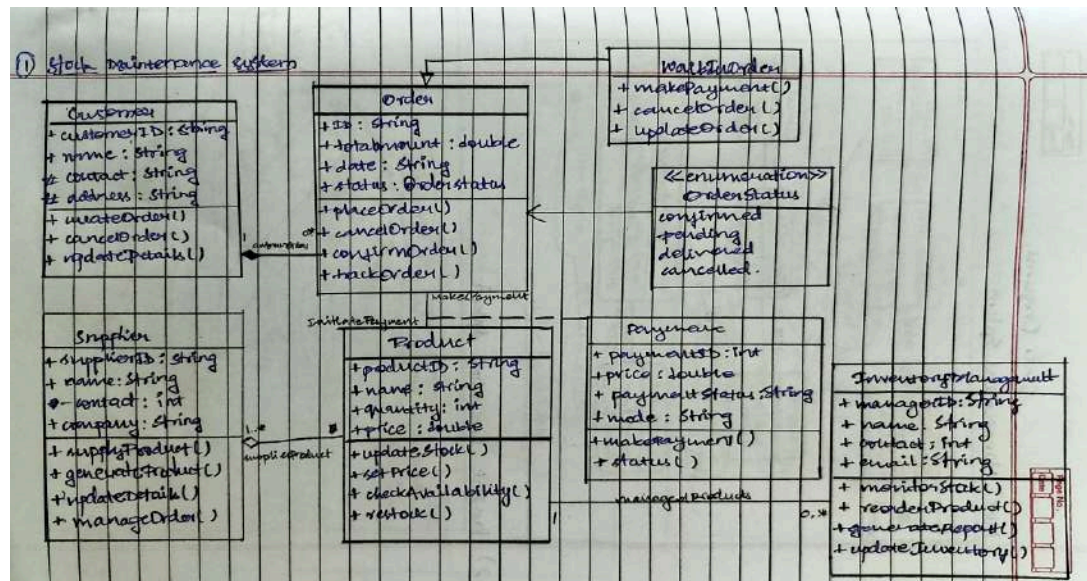 ① Stock Maintenance System
Customer
+ customerID : String
+ name : String
# contact : String
# address : String
+ createOrder()
+ cancelOrder()
+ updateDetails()
1
0*
Order
+ ID : String
+ totalamount : double
+ date : String
+ status : Orderstatus
+ placeOrder()
+ cancelOrder()
+ confirmOrder()
+ trackOrder()
WalkInOrder
+ makePayment()
+ cancelOrder()
+ updateOrder()
<<enumeration>>
OrderStatus
confirmed
pending
delivered
cancelled.
makePayment
InitiatePayment
Supplier
+ supplierID : String
+ name : String
- contact : int
+ company : String
+ supplyProduct()
+ generateProduct()
+ updateDetails()
+ manageOrder()
1..*
*
suppliesProduct
Product
+ productID : String
+ name : String
+ quantity : int
+ price : double
+ updateStock()
+ setPrice()
+ checkAvailability()
+ restock()
Payment
+ paymentID : int
+ price : double
+ paymentStatus : String
+ mode : String
+ makePayment()
+ status()
managesProducts
1
0..*
InventoryManagement
+ managerID : String
+ name : String
+ contact : int
+ email : String
+ monitorStock()
+ reorderProduct()
+ generateReport()
+ updateInventory()
Page No.
Date